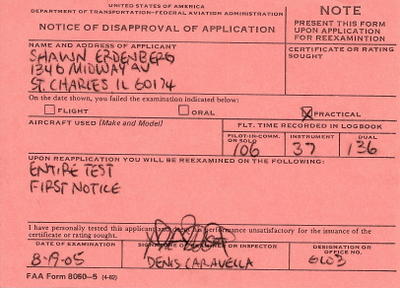 UNITED STATES OF AMERICA
DEPARTMENT OF TRANSPORTATION–FEDERAL AVIATION ADMINISTRATION
NOTICE OF DISAPPROVAL OF APPLICATION
NOTE
PRESENT THIS FORM
UPON APPLICATION
FOR REEXAMINTION
NAME AND ADDRESS OF APPLICANT
SHAWN ERDENBERG
1346 MIDWAY AV
ST. CHARLES IL 60174
CERTIFICATE OR RATING
SOUGHT
On the date shown, you failed the examination indicated below:
FLIGHT
ORAL
X PRACTICAL
AIRCRAFT USED (Make and Model)
FLT. TIME RECORDED IN LOGBOOK
PILOT-IN-COMM. OR SOLO
106
INSTRUMENT
37
DUAL
136
UPON REAPPLICATION YOU WILL BE REEXAMINED ON THE FOLLOWING:
ENTIRE TEST
FIRST NOTICE
I have personally tested this applicant and performance unsatisfactory for the issuance of the
certificate or rating sought.
DATE OF EXAMINATION
8-19-05
OR INSPECTOR
DENIS CARAVELLA
DESIGNATION OR
OFFICE NO.
GL03
FAA Form 8060–5 (4-82)